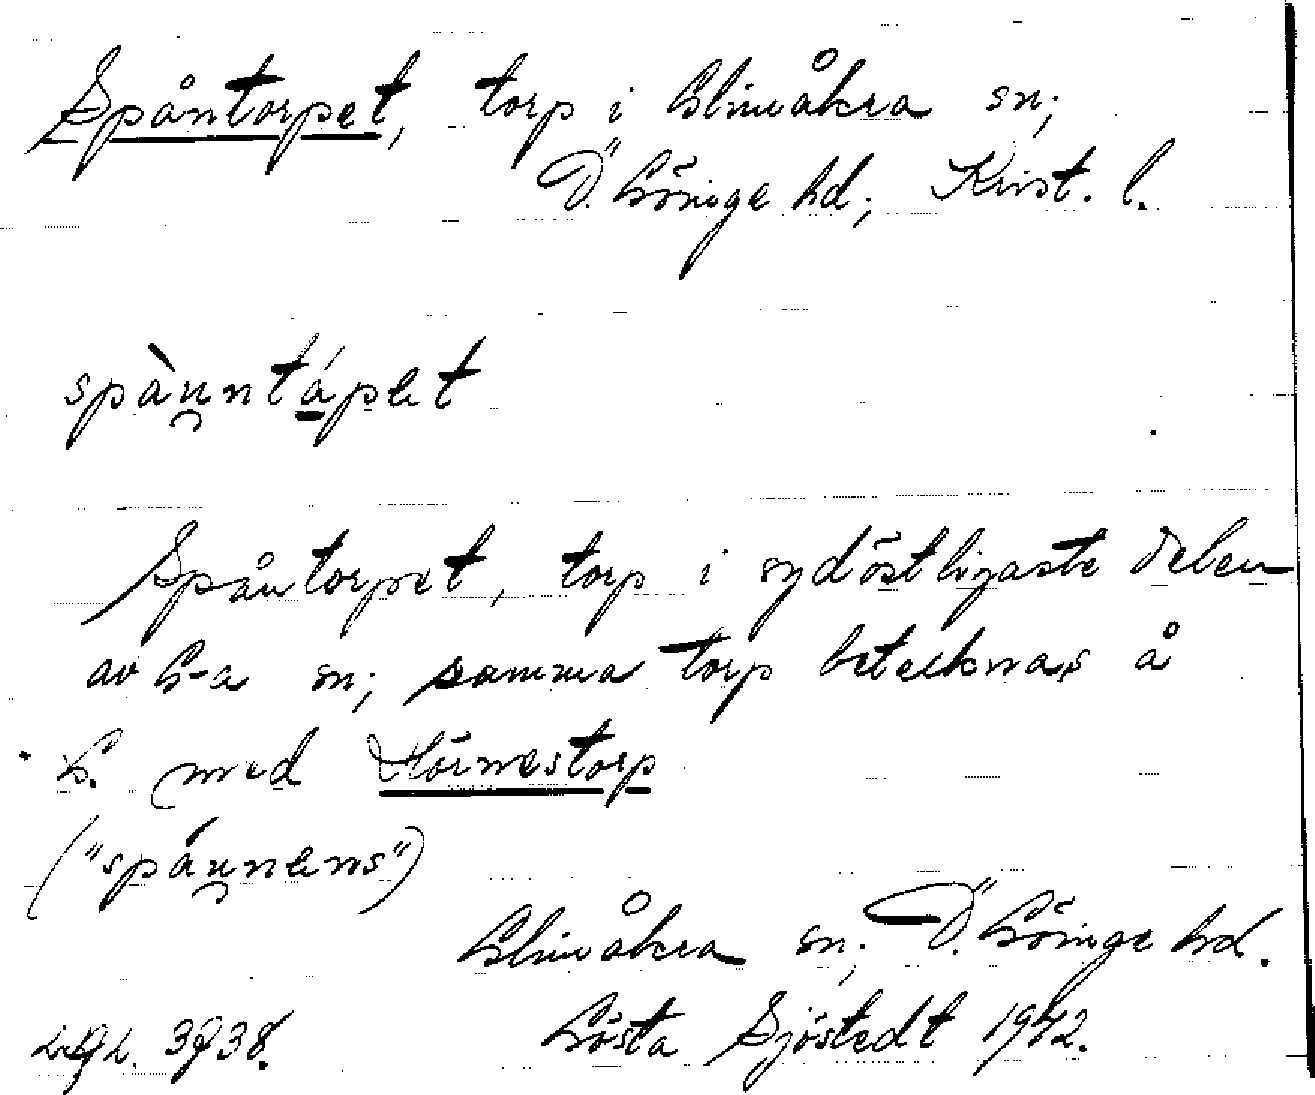 Spåntorpet, torp i Glimåkra sn;
Ö. Göinge hd; Krist. l.
spànntápet
Spåntorpet, torp i sydöstligaste delen
av G-a sn; samma torp betecknas å
G. med Hörnestorp
("spánnens")
Glimåkra sn; Ö. Göinge hd.
Gösta Sjöstedt 1942.